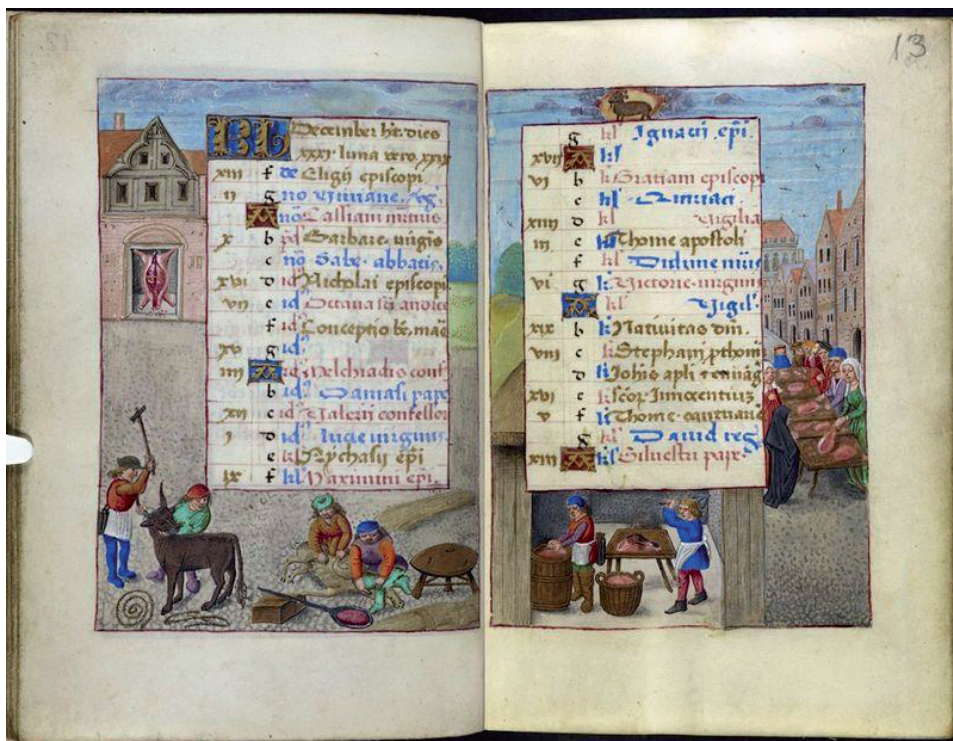 KL December ht dies
xxxi luna vero xxix
xiii f de Eligii episcopi
ii g no
A no Cassiani
x b pd Barbare virginis
c no Sabe abbatis
xvi d id Nicholai episcopi
vii e id Octava sci andree
f id Conceptio be mar
xv g id
iiii A id Melchiadis conf
b id Damasi pape
xii c id Valerii confessor
i d id lucie virginis
e kl epi
ix f kl Maximini epi
13
g kl Ignacii epi
xvii A kl
vi b kl Gratiani episcopi
c kl
xiiii d kl Vigilia
iii e kl Thome apostoli
f kl
vi g kl Victorie virginis
A kl Vigil
xix b kl Nativitas dni
viii c kl Stephani
d kl Johis apli
xvi e kl scor Innocentium
v f kl Thome
g kl David reg
xiii A kl Silvestri pape